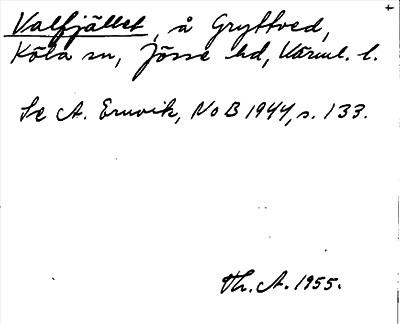 Valfjället, å Gryttved,
Köla sn, Jösse hd, Värml. l.
Se A. Ernvik, NoB 1944, s. 133.
Th. A. 1955.